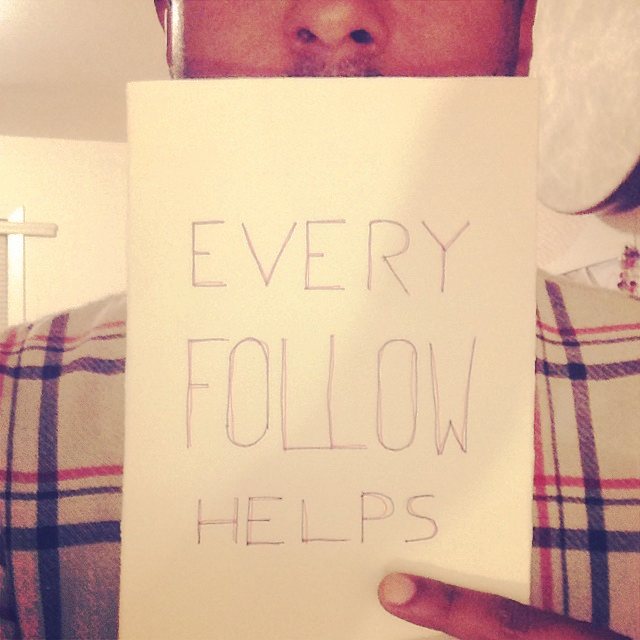 EVERY
FOLLOW
HELPS